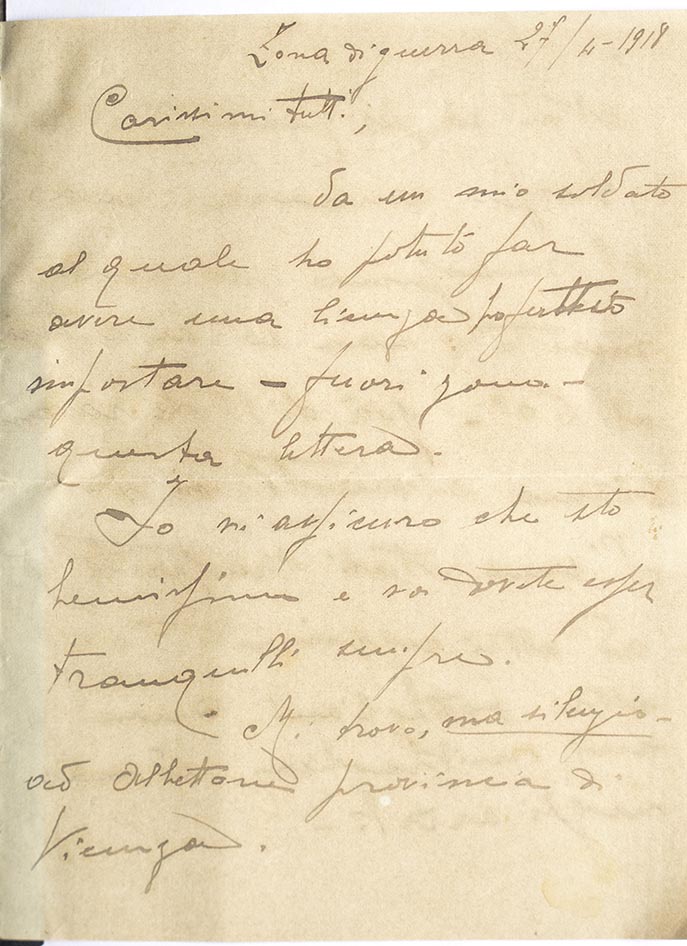 Zona di guerra 27/4-1918
Carissimi tutti,
da un mio soldato
al quale ho potuto far
avere una licenza posso farvi
impostare – fuori zona –
questa lettera.
Io vi assicuro che sto
benissimo e voi dovete esser
tranquilli sempre.
Mi trovo, ma silenzio –
ad Albettone provincia di
Vicenza.